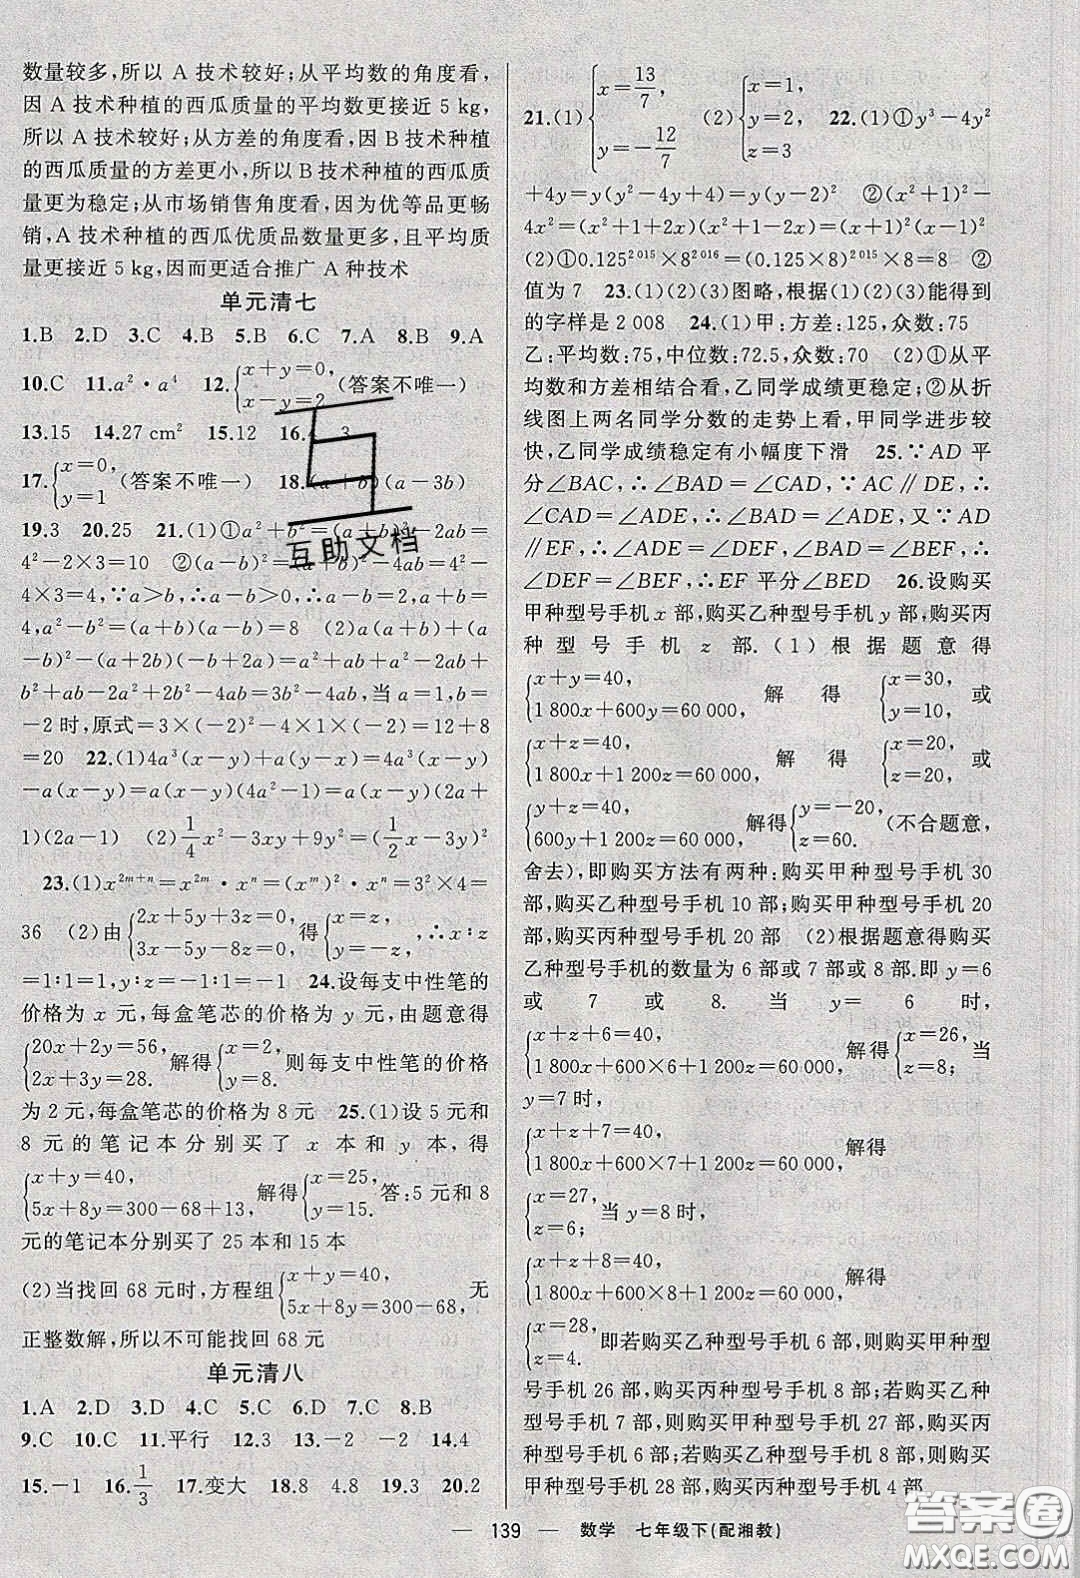 数量较多,所以 A 技术较好;从平均数的角度看,
因 A 技术种植的西瓜质量的平均数更接近 5 kg,
所以 A 技术较好;从方差的角度看,因 B 技术种植
的西瓜质量的方差更小,所以 B 技术种植的西瓜质
量更为稳定;从市场销售角度看,因为优等品更畅
销,A 技术种植的西瓜优质品数量更多,且平均质
量更接近 5 kg,因而更适合推广 A 种技术
单元清七
1.B 2.D 3.C 4.B 5.B 6.C 7.A 8.B 9.A
10.C 11.a²·a⁴ 12.{x+y=0, x-y=2 (答案不唯一)
13.15 14.27 cm² 15.12 16. 3
17.{x=0, y=1 (答案不唯一) 18.(a+b)(a-3b)
19.3 20.25 21.(1)①a²+b²=(a+b)²-2ab=
4²-2×3=10 ②(a-b)²=(a+b)²-4ab=4²-
4×3=4,∵a>b,∴a-b>0,∴a-b=2,a+b=
4,a²-b²=(a+b)(a-b)=8 (2)a(a+b)+(a
-b)²-(a+2b)(-b+2a)=a²+ab+a²-2ab+
b²+ab-2a²+2b²-4ab=3b²-4ab,当 a=1,b=
-2时,原式=3×(-2)²-4×1×(-2)=12+8
=20 22.(1)4a³(x-y)+a(y-x)=4a³(x-y)
-a(x-y)=a(x-y)(4a²-1)=a(x-y)(2a+
1)(2a-1) (2)1/4x²-3xy+9y²=(1/2x-3y)²
23.(1)x²ᵐ⁺ⁿ=x²ᵐ·xⁿ=(xᵐ)²·xⁿ=3²×4=
36 (2)由{2x+5y+3z=0, 3x-5y-8z=0, 得{x=z, y=-z, ∴x:z
=1:1=1,y:z=-1:1=-1 24.设每支中性笔的
价格为 x 元,每盒笔芯的价格为 y 元,由题意得
{20x+2y=56, 2x+3y=28. 解得{x=2, y=8. 则每支中性笔的价格
为 2 元,每盒笔芯的价格为 8 元 25.(1)设 5 元和
8 元的笔记本分别买了 x 本和 y 本,得
{x+y=40, 5x+8y=300-68+13, 解得{x=25, y=15. 答:5 元和 8
元的笔记本分别买了 25 本和 15 本
(2)当找回 68 元时,方程组{x+y=40, 5x+8y=300-68, 无
正整数解,所以不可能找回 68 元
单元清八
1.A 2.D 3.D 4.C 5.C 6.D 7.C 8.B
9.C 10.C 11.平行 12.3 13.-2 -2 14.4
15.-1 16.1/3 17.变大 18.8 4.8 19.3 20.2
21.(1){x=13/7, y=-12/7 (2){x=1, y=2, z=3 22.(1)①y³-4y²
+4y=y(y²-4y+4)=y(y-2)² ②(x²+1)²-
4x²=(x²+1+2x)(x²+1-2x)=(x+1)²(x-1)²
(2)①0.125²⁰¹⁵×8²⁰¹⁶=(0.125×8)²⁰¹⁵×8=8 ②
值为 7 23.(1)(2)(3)图略,根据(1)(2)(3)能得到
的字样是 2 008 24.(1)甲:方差:125,众数:75
乙:平均数:75,中位数:72.5,众数:70 (2)①从平
均数和方差相结合看,乙同学成绩更稳定;②从折
线图上两名同学分数的走势上看,甲同学进步较
快,乙同学成绩稳定有小幅度下滑 25.∵AD 平
分∠BAC,∴∠BAD=∠CAD,∵AC∥DE,∴
∠CAD=∠ADE,∴∠BAD=∠ADE,又∵AD
∥EF,∴∠ADE=∠DEF,∠BAD=∠BEF,∴
∠DEF=∠BEF,∴EF 平分∠BED 26.设购买
甲种型号手机 x 部,购买乙种型号手机 y 部,购买丙
种型号手机 z 部.(1)根据题意得
{x+y=40, 1 800x+600y=60 000, 解得 {x=30, y=10, 或
{x+z=40, 1 800x+1 200z=60 000, 解得 {x=20, z=20, 或
{y+z=40, 600y+1 200z=60 000, 解得{y=-20, z=60. (不合题意,
舍去),即购买方法有两种:购买甲种型号手机 30
部,购买乙种型号手机 10 部;购买甲种型号手机 20
部,购买丙种型号手机 20 部 (2)根据题意得购买
乙种型号手机的数量为 6 部或 7 部或 8 部.即 y=6
或 7 或 8. 当 y=6 时,
{x+z+6=40, 1 800x+600×6+1 200z=60 000, 解得{x=26, z=8; 当
y=7 时,
{x+z+7=40, 1 800x+600×7+1 200z=60 000, 解得
{x=27, z=6; 当 y=8 时,
{x+z+8=40, 1 800x+600×8+1 200z=60 000, 解得
{x=28, z=4. 即若购买乙种型号手机 6 部,则购买甲种型
号手机 26 部,购买丙种型号手机 8 部;若购买乙种
型号手机 7 部,则购买甲种型号手机 27 部,购买丙
种型号手机 6 部;若购买乙种型号手机 8 部,则购买
甲种型号手机 28 部,购买丙种型号手机 4 部
互助文档
— 139 — 数学 七年级下(配湘教)
答案圈
MXQE.COM